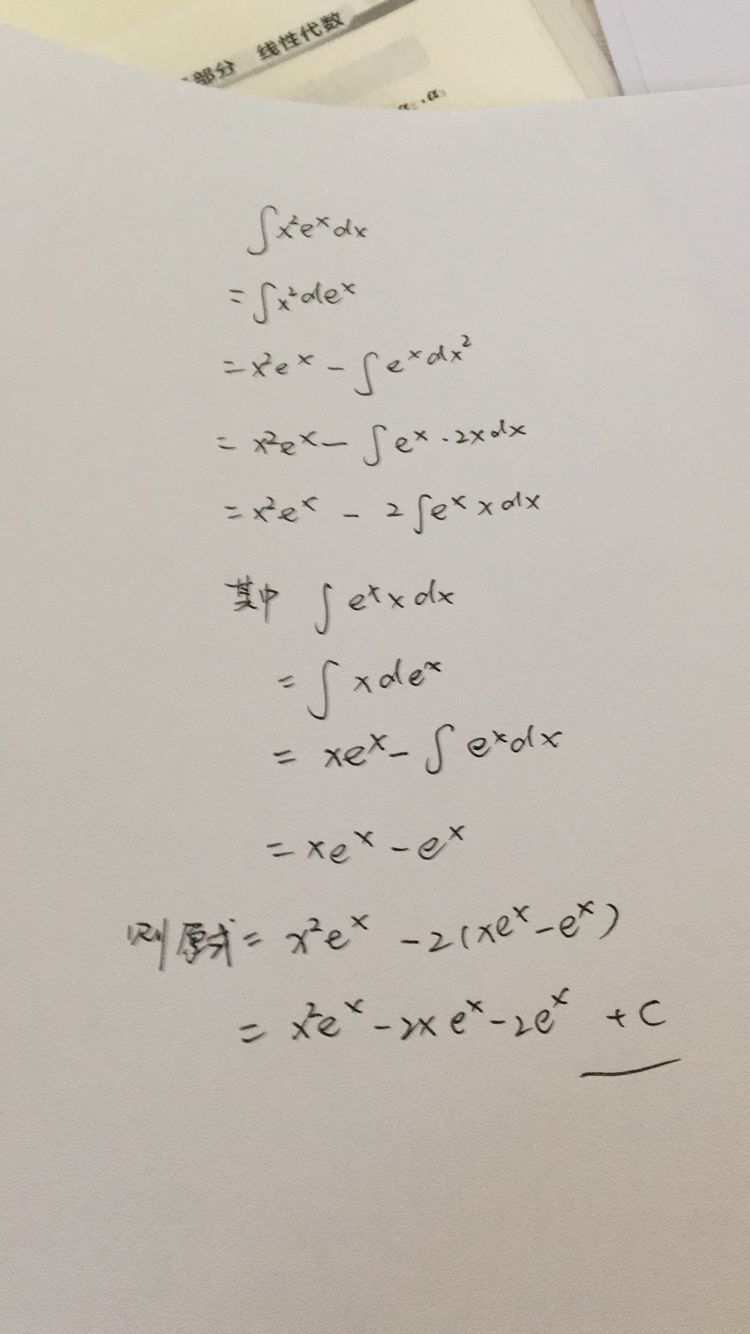 部分 线性代数
,α
∫x²eˣdx
=∫x²deˣ
=x²eˣ-∫eˣdx²
=x²eˣ-∫eˣ·2xdx
=x²eˣ-2∫eˣxdx
其中 ∫eˣxdx
=∫xdeˣ
=xeˣ-∫eˣdx
=xeˣ-eˣ
则原式=x²eˣ-2(xeˣ-eˣ)
=x²eˣ-2xeˣ-2eˣ+C